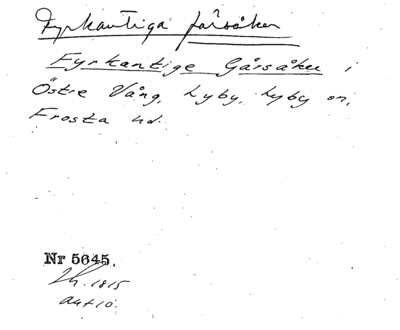 Fyrkantiga fårsåker
Fyrkantige Gårsåker i
Östre Vång, Lyby, Lyby sn,
Frosta hd.
Nr 5645.
Lh. 1815
akt 10.